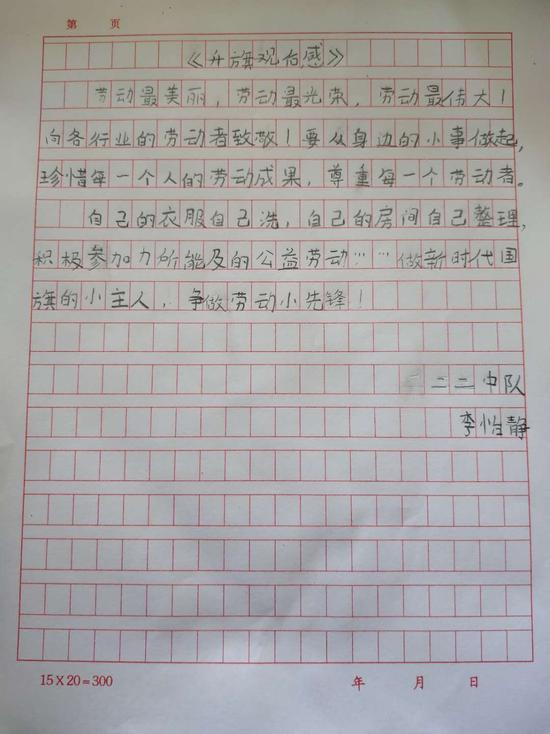 第 页
《升旗观后感》
劳动最美丽，劳动最光荣，劳动最伟大！
向各行业的劳动者致敬！要从身边的小事做起，
珍惜每一个人的劳动成果，尊重每一个劳动者。
自己的衣服自己洗，自己的房间自己整理，
积极参加力所能及的公益劳动……做新时代国
旗的小主人，争做劳动小先锋！
二二中队
李怡静
15×20=300 年 月 日